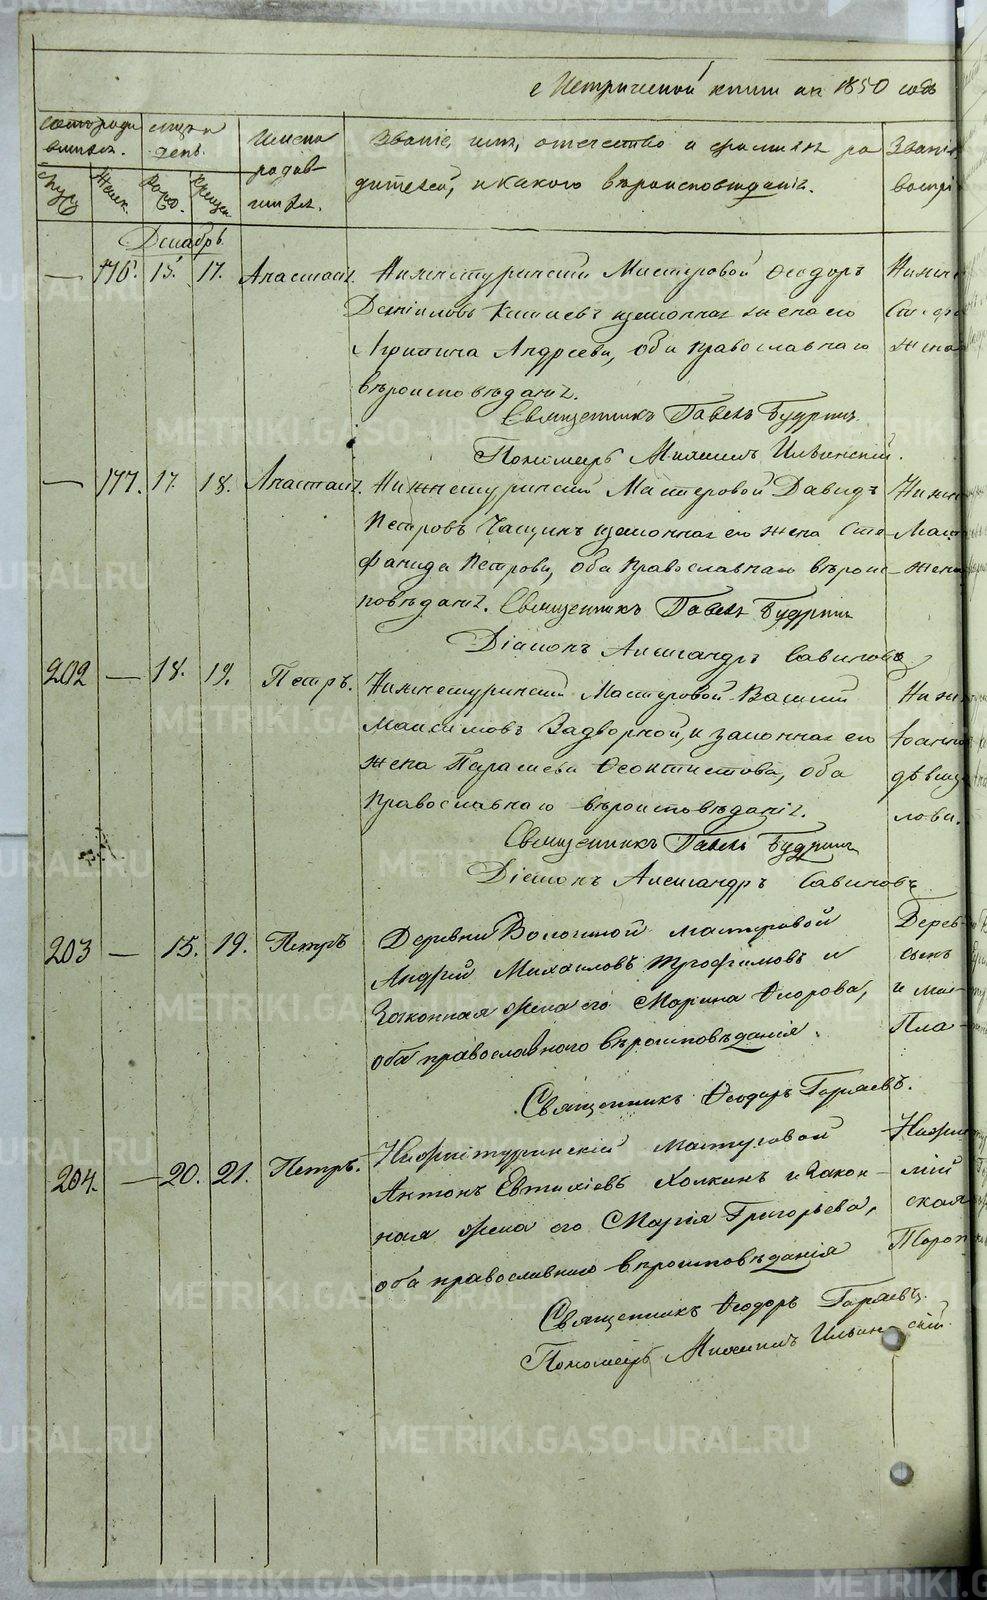 Метрической книги на 1850 годъ
Счетъ роди
вшихся.
Мѣсяцъ и
день.
Имена
родив-
шихся.
Званіе, имя, отечество и фамилія ро
дителей, и какого вѣроисповѣданія.
Званіе
воспрі
Муж. Женск. Рожд. Крещен.
Декабрь
— 176. 15. 17. Анастасія. Нижнетуринскій Мастеровой Ѳеодоръ Нижне
Даніиловъ законная жена его
Агрипина Андреева, оба православнаго жена
вѣроисповѣданія.
Священникъ Павелъ Будринъ
Пономарь Михаилъ Ильинскій.
— 177. 17. 18. Анастасія. Нижнетуринскій Мастеровой Давидъ Нижн
Петровъ Чащинъ законная его жена Сте Маст
фанида Петрова, оба православнаго вѣроис- жена
повѣданія. Священникъ Павелъ Будринъ
Діаконъ Александръ Савиновъ
202 — 18. 19. Петръ. Нижнетуринскій Мастеровой Василій Ниж
Максимовъ Задворной, и законная его Іоанн
жена Параскева Ѳеоктистова, оба дѣвиц
православнаго вѣроисповѣданія. лова.
Священникъ Павелъ Будринъ
Діаконъ Александръ Савиновъ
203 — 15. 19. Петръ Деревни Волочиной мастеровой Дерев
Андрей Михаиловъ Трофимовъ и сынъ
Законная жена его Марина Ѳедорова, и мас
оба православного вѣроисповѣданія. Пла
Священникъ Ѳеодоръ Горяевъ.
204. — 20. 21. Петръ. Нижнетуринскій мастеровой Нижне
Антонъ Евтихіевъ Холкинъ и Закон- мій
ная жена его Марія Григорьева, ская
оба православнаго вѣроисповѣданія Тороп
Священникъ Ѳеодоръ Горяевъ.
Пономарь Михаилъ Ильинскій.
METRIKI.GASO-URAL.RU